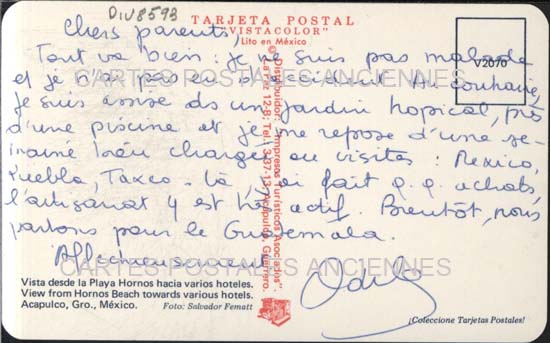 DIV8593
TARJETA POSTAL
"VISTACOLOR"
Lito en México
V2070
Chers parents,
Tout va bien : je ne suis pas malade
et je n'ai pas eu d'accident. Au souhaité,
je suis assise ds un jardin tropical, près
d'une piscine et je me repose d'une se-
maine bien chargée en visites : Mexico,
Puebla, Taxco. Là, j'ai fait q.q achats,
l'artisanat y est très actif. Bientôt, nous
partons pour le Guatemala.
Affectueusement
CARTES POSTALES ANCIENNES
CARTES POSTALES ANCIENNES
Distribuidor: "Impresos Turísticos Asociados".
Acapulco, Guerrero.
Vista desde la Playa Hornos hacia varios hoteles.
View from Hornos Beach towards various hotels.
Acapulco, Gro., México.
Foto: Salvador Fematt
¡Coleccione Tarjetas Postales!